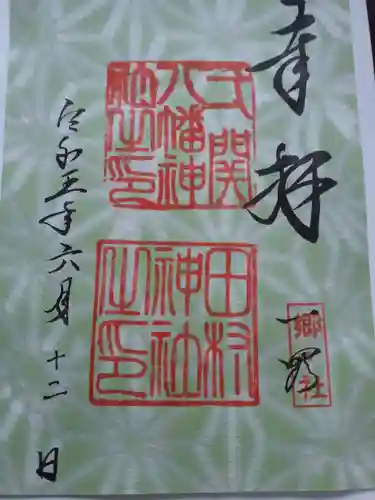 奉拝
郷社
一関
弌関
八幡神
社之印
田村
神社
之印
令和五年六月十二日